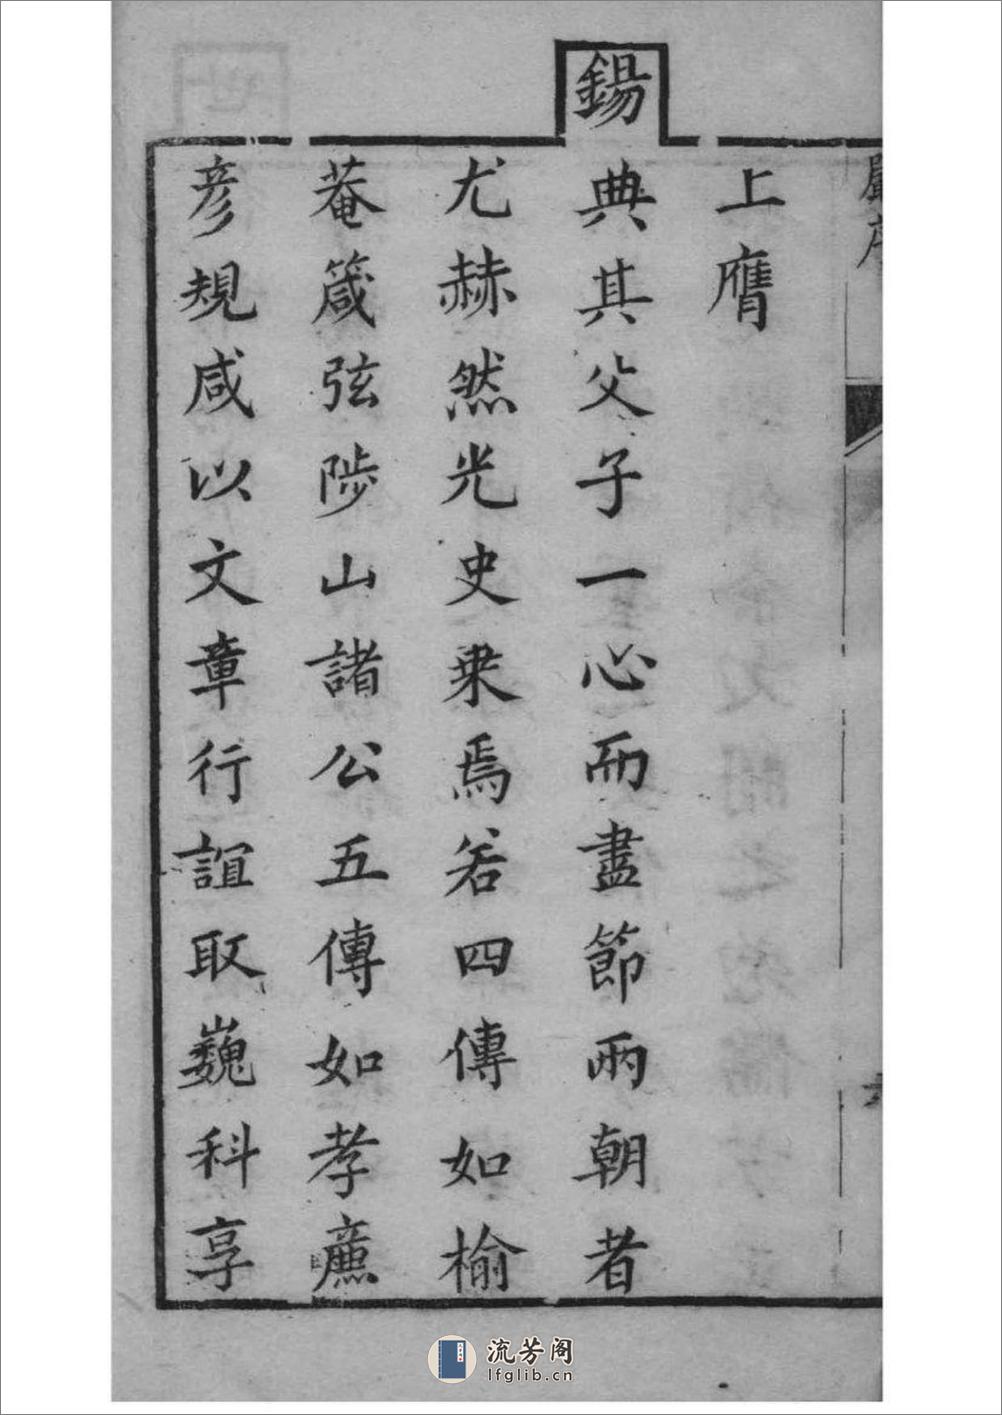 上膺
鍚典其父子一心而盡節兩朝者
尤赫然光史乘焉若四傳如榆
菴箴弦陟山諸公五傳如孝廉
彦規咸以文章行誼取巍科享
流芳阁
lfglib.cn